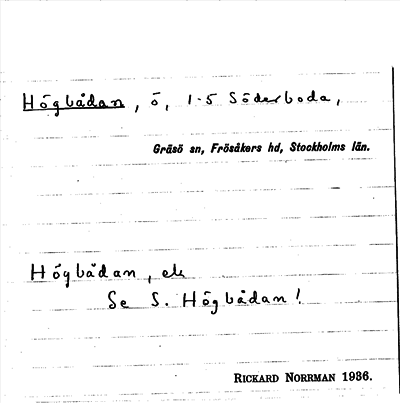 Högbådan, ö, 1-5 Söderboda,
Gräsö sn, Frösåkers hd, Stockholms län.
Högbådan, ek
Se S. Högbådan!
RICKARD NORRMAN 1936.